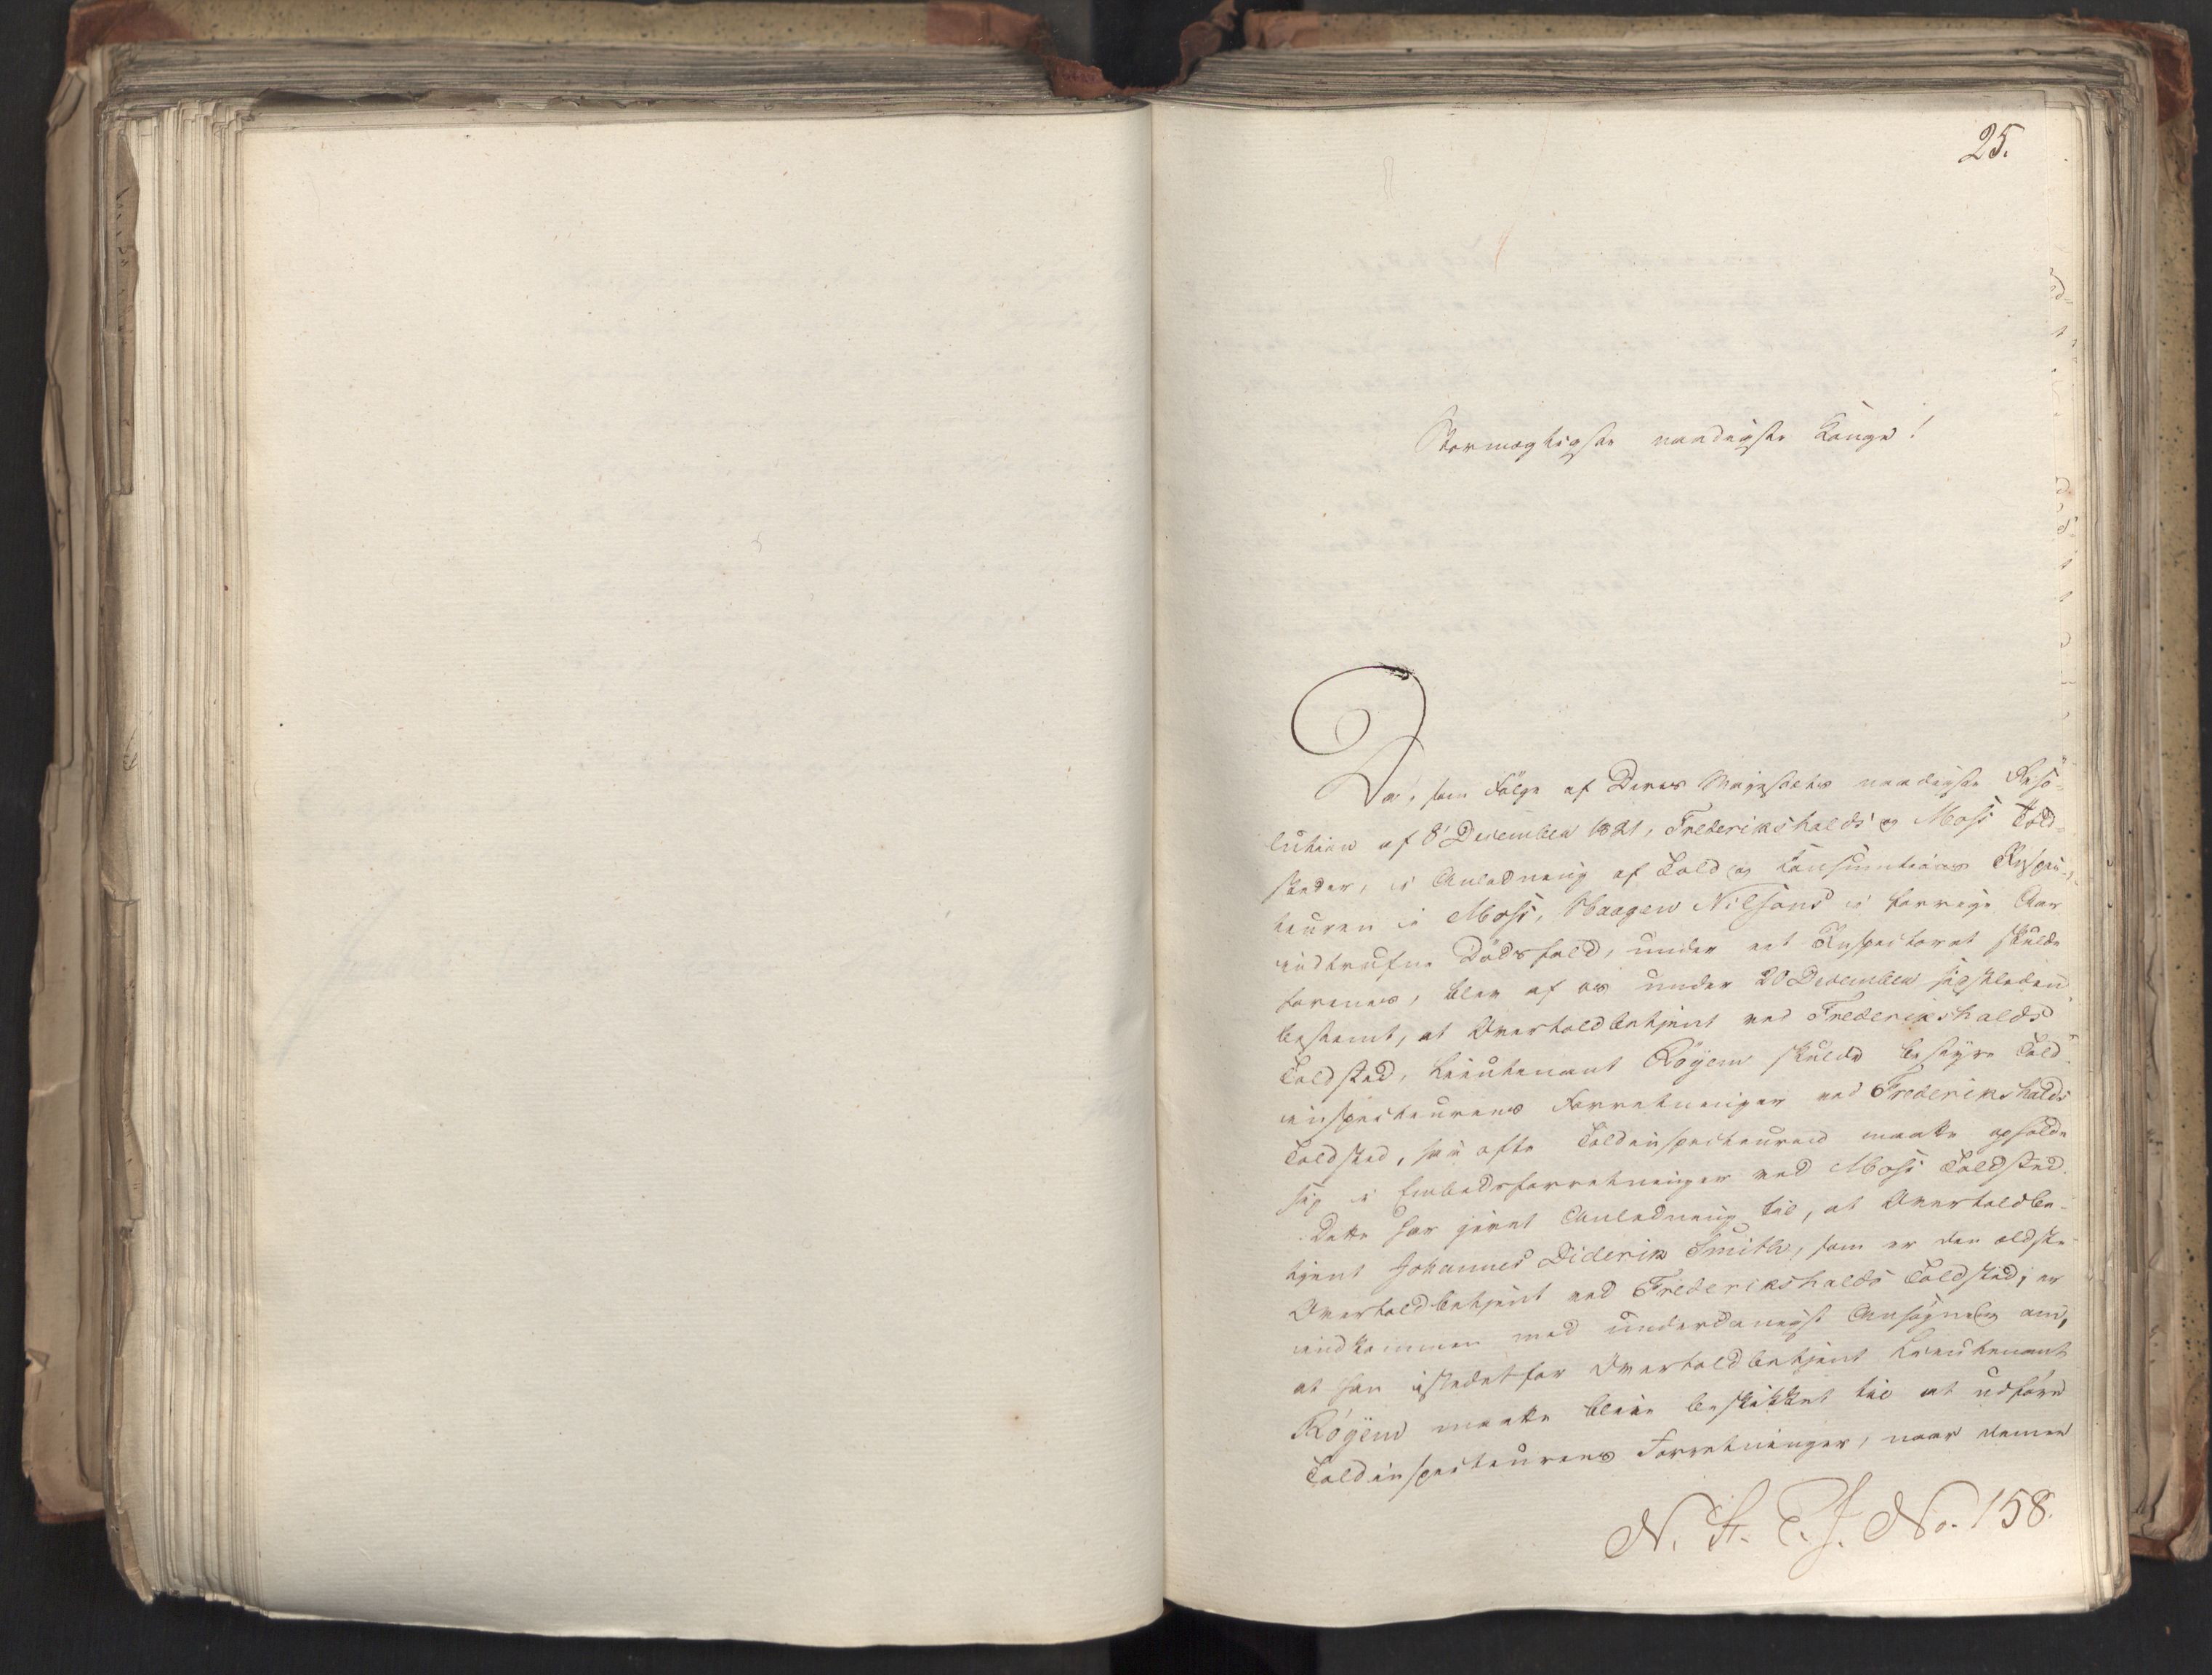 25.
Stormægtigste naadigste Konge!
Da, som Følge af Deres Majestæts naadigste Reso-
lution af 8' December 1821, Frederikshalds og Moss Told-
steder, i Anledning af Told og Consumtions Inspec-
teuren i Moss, Haagen Nilsons i forrige Aar
indtrufne Dødsfald, under eet Inspectorat skulde
forenes, blev af os under 20 December sidstleden
bestemt, at Overtoldbetjent ved Frederikshalds
Toldsted, Lieutenant Röyem skulde bestyre Told-
inspecteurens Forretninger ved Frederikshalds
Toldsted, saa ofte Toldinspecteuren maatte opholde
sig i Embedsforretninger ved Moss Toldsted.
Dette har givet Anledning til, at Overtoldbe-
tjent Johannes Diderik Smith, som er den ældste
Overtoldbetjent ved Frederikshalds Toldsted, er
indkommen med underdanigst Ansøgning om,
at han istedetfor Overtoldbetjent Lieutenant
Röyem maatte blive beskikket til at udføre
Toldinspecteurens Forretninger, naar denne
N. St. E. J. No. 158.